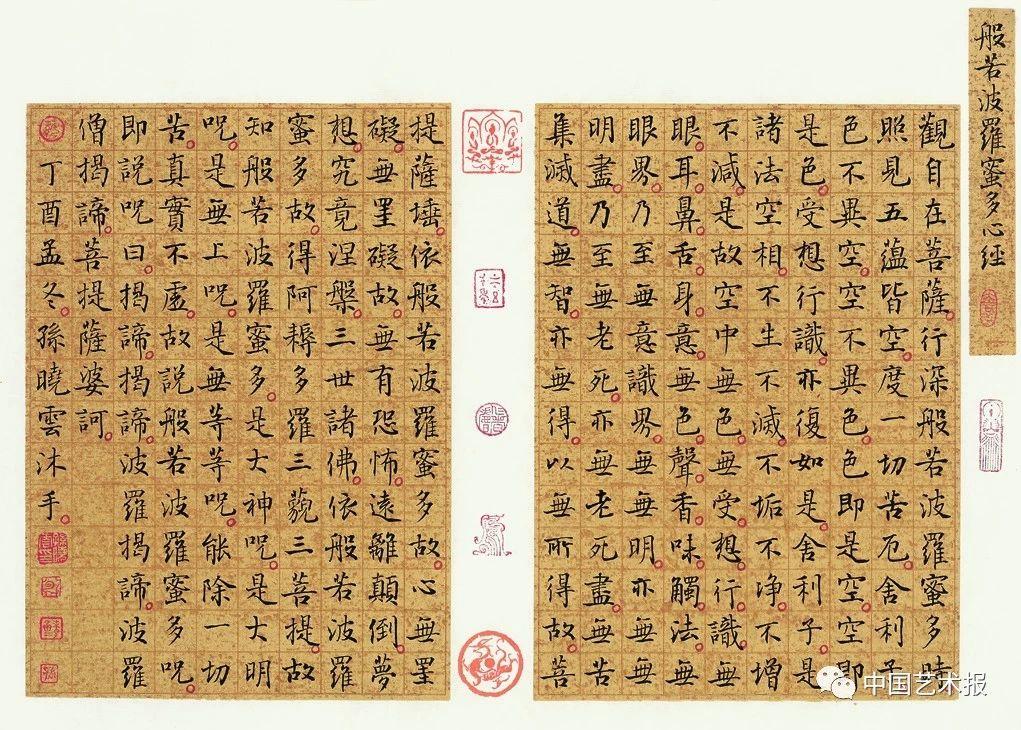 般若波羅蜜多心經
觀自在菩薩行深般若波羅蜜多時
照見五蘊皆空度一切苦厄舍利子
色不異空空不異色色即是空空即
是色受想行識亦復如是舍利子是
諸法空相不生不滅不垢不淨不增
不減是故空中無色無受想行識無
眼耳鼻舌身意無色聲香味觸法無
眼界乃至無意識界無無明亦無無
明盡乃至無老死亦無老死盡無苦
集滅道無智亦無得以無所得故菩
提薩埵依般若波羅蜜多故心無罣
礙無罣礙故無有恐怖遠離顛倒夢
想究竟涅槃三世諸佛依般若波羅
蜜多故得阿耨多羅三藐三菩提故
知般若波羅蜜多是大神呪是大明
呪是無上呪是無等等呪能除一切
苦真實不虛故說般若波羅蜜多呪
即說呪曰揭諦揭諦波羅揭諦波羅
僧揭諦菩提薩婆訶
丁酉孟冬孫曉雲沐手
中国艺术报